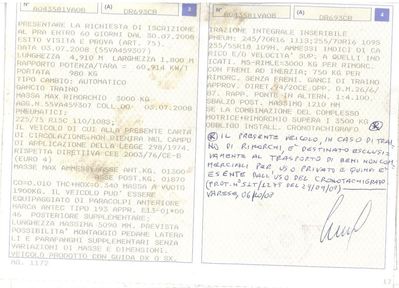 A043581VA08
DR693CB
PRESENTARE LA RICHIESTA DI ISCRIZIONE
AL PRA ENTRO 60 GIORNI DAL 30.07.2008
ESITO VISITA E PROVA (ART. 75).
DATA 03.07.2008 (55VA459307)
LUNGHEZZA 4,910 M LARGHEZZA 1,800 M
RAPPORTO POTENZA/TARA = 60,914 KW/T
PORTATA 980 KG
TIPO CAMBIO: AUTOMATICO
GANCIO TRAINO
MASSA MAX RIMORCHIO 3000 KG
AGG.N.55VA459307 COLL.DO 03.07.2008
PNEUMATICI:
225/75 R15C 110/108S;
IL VEICOLO DI CUI ALLA PRESENTE CARTA
DI CIRCOLAZIONE NON RIENTRA NEL CAMPO
DI APPLICAZIONE DELLA LEGGE 298/1974.
RISPETTA DIRETTIVA CEE 2003/76/CE-B
(EURO 4)
MASSE MAX AMMESSE ANT.KG. 01300
POST.KG. 01870
CO=0.010 THC+NOX=0.340 MASSA A VUOTO
1900KG. IL VEICOLO PUO' ESSERE
EQUIPAGGIATO DI PARACOLPI ANTERIORI
MARCA ANTEC TIPO 193 APPR. E13-01*00
46 POSTERIORE SUPPLEMENTARE;
LUNGHEZZA MASSIMA 5090 MM. PREVISTA
POSSIBILITA' MONTAGGIO PEDANE LATERA
LI E PARAFANGHI SUPPLEMENTARI SENZA
VARIAZIONI DI MASSE E DIMENSIONI.
VEICOLO PRODOTTO CON GUIDA DX O SX.
AG. 1172
A043581VA08
DR693CB
TRAZIONE INTEGRALE INSERIBILE
PNEUM: 245/70R16 111S;255/70R16 109S
255/55R18 109H. AMMESSI INDICI DI CA
RICO E/O VELOCITA' SUP; A QUELLI IND
ICATI. MS-RIMLE=3000 KG PER RIMORC.
CON FRENI AD INERZIA; 750 KG PER
RIMORC. SENZA FRENI. GANCI DI TRAINO
APPROV. DIRET.94/20CE OPP. D.M.26/6/
87. RAPP. PONTE IN ALTERN. 1:4.100.
SBALZO POST. MASSIMO 1210 MM
SE LA COMBINAZIONE DEL COMPLESSO
MOTRICE+RIMORCHIO SUPERA I 3500 KG
OBBLIGO INSTALL. CRONOTACHIGRAFO
IL PRESENTE VEICOLO, IN CASO DI TRAI
NO DI RIMORCHI, E' DESTINATO ESCLUSI
VAMENTE AL TRASPORTO DI BENI NON COM
MERCIALI PER USO PRIVATO E QUINDI E'
ESENTE DALL'USO DEL CRONOTACHIGRAFO
VARESE,